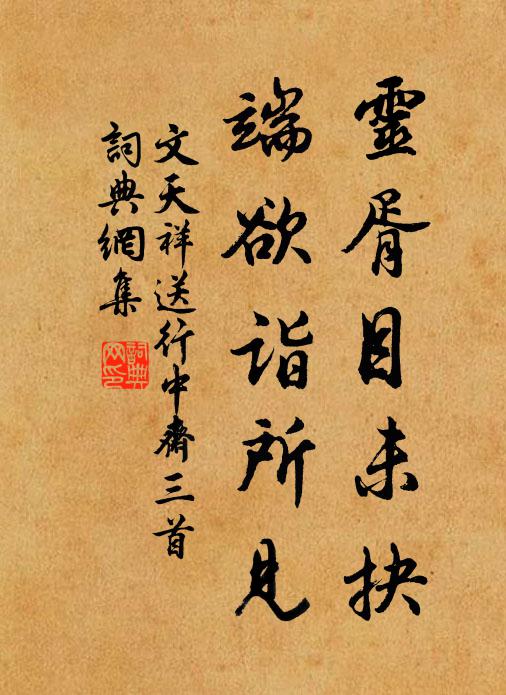 靈胥目未抉
端欲詣所見
文天祥送行中齋三首
詞典網集
詞典網印